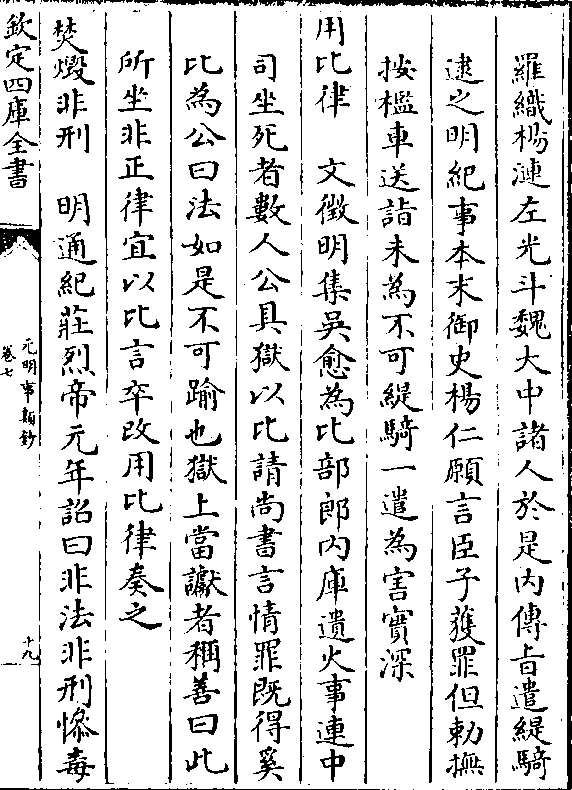 羅織楊漣左光斗魏大中諸人於是内傳旨遣緹騎
逮之明紀事本末御史楊仁願言臣子獲罪但勅撫
按檻車送詣未為不可緹騎一遣為害實深
用比律　文徵明集吳愈為比部郎内庫遺火事連中
司坐死者數人公具獄以比請尚書言情罪既得奚
比為公曰法如是不可踰也獄上當讞者稱善曰此
所坐非正律宜以比言卒改用比律奏之
焚燬非刑　明通紀莊烈帝元年詔曰非法非刑慘毒
欽定四庫全書
元明事類鈔
卷七
十九